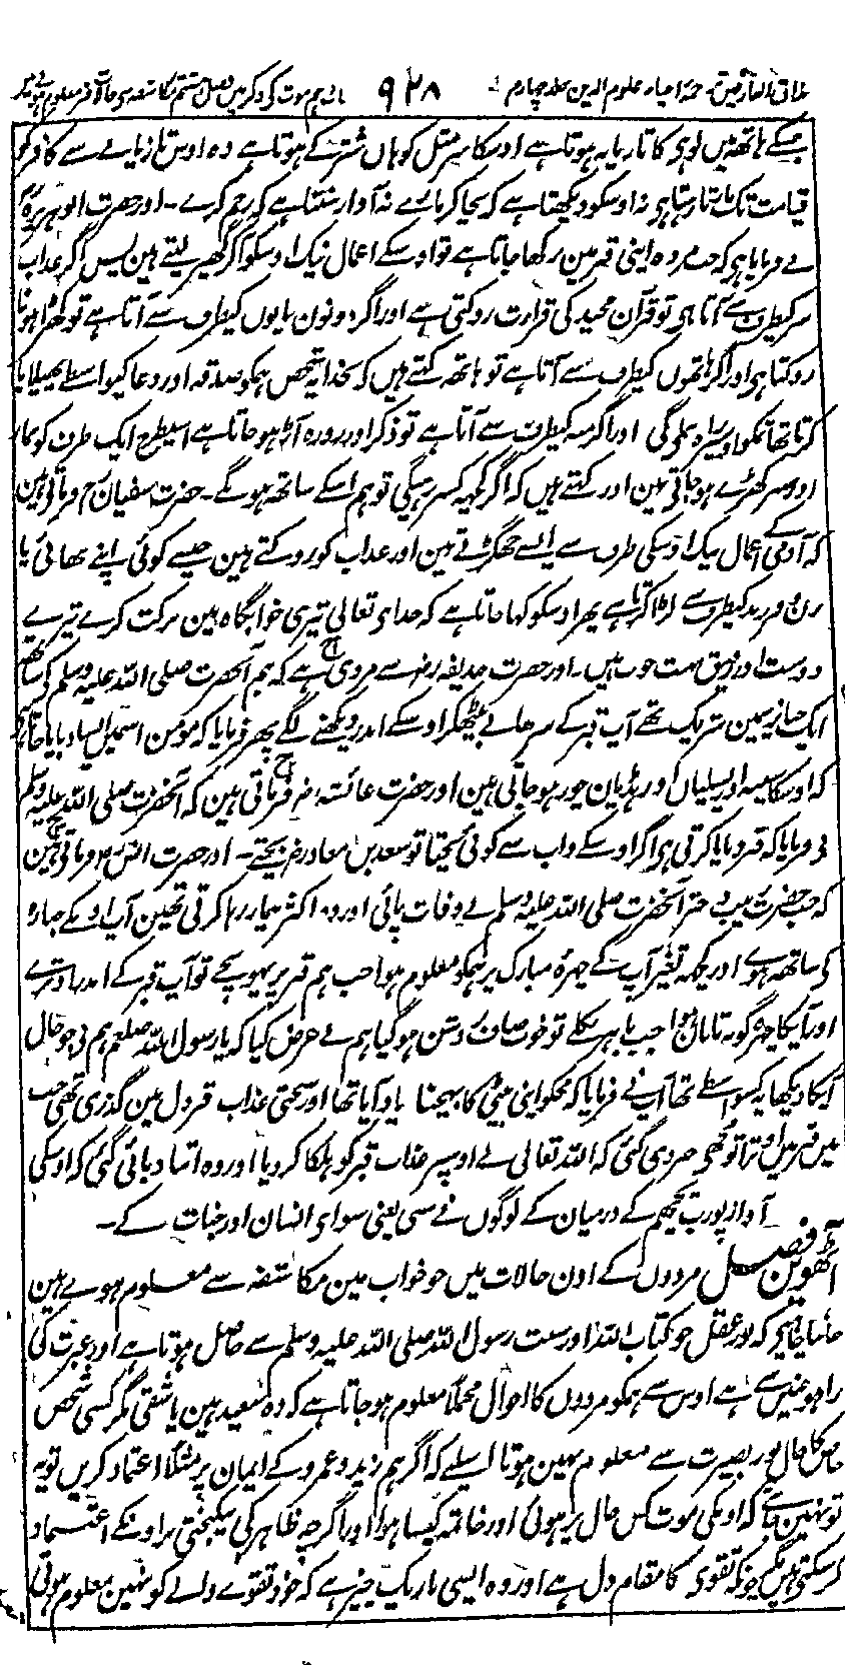 مذاق العارفین ترجمہ احیاء علوم الدین جلد چہارم ۹۲۸ باب دہم موت کی ذکر میں فصل ہشتم مکاشفہ سے حالات
جسکے ہاتھ میں لوہی کا تازیانہ ہوتا ہے اوسکا سر مثل کوہان شتر کے ہوتا ہے وہ اوس تازیانے سے کافر کو
قیامت تک مارتا رہتا ہی نہ اوسکو دیکھتا ہے کہ بچا کر مارے نہ آواز سنتا ہے کہ رحم کرے ۔ اور حضرت ابو ہریرہ
نے فرمایا ہی کہ جب مردہ اپنی قبر مین رکھا جاتا ہے تو اوسکے اعمال نیک اوسکو آکر گھیر لیتے ہین پس اگر عذاب
سر کیطرف سے آتا ہی تو قرآن مجید کی قرارت روکتی ہے اور اگر دونون پایوں کیطرف سے آتا ہے تو کھڑا ہونا
روکتا ہی اور اگر ہاتھوں کیطرف سے آتا ہے تو ہاتھ کہتے ہیں کہ بخدا یہ شخص ہمکو صدقہ اور دعا کیواسطے پھیلایا
کرتا تھا تمکو اوسپر راہ نملیگی اور اگر منہ کیطرف سے آتا ہے تو ذکر اور روزہ آڑ ہو جاتا ہے اسیطرح ایک طرف کو نماز
اور صبر کھڑے ہو جاتی ہین اور کہتے ہیں کہ اگر کچھ کسر رہیگی تو ہم اسکے ساتھ ہوگے ۔ حضرت سفیان رح فرماتی ہین
کہ آدمی کے اعمال نیک اوسکی طرف سے ایسے جھگڑتے ہین اور عذاب کو روکتے ہین جیسے کوئی اپنے بھائی یا
زن و فرزند کیطرف سے لڑا کرتا ہے پھر اوسکو کہا جاتا ہے کہ خدای تعالی تیری خوابگاہ مین برکت کرے تیرے
دوست اور رفیق بہت خوب ہیں ۔ اور حضرت حذیفہ رض سے مروی ہے کہ ہم آنحضرت صلی اللہ علیہ وسلم کی ساتھ
ایک جنازہ مین شریک تھے آپ قبر کے سرہانے بیٹھکر اوسکے اندر دیکھنے لگے پھر فرمایا کہ مومن اسمیں ایسا دبایا جاتا ہے
کہ اوسکا سینہ اور پسلیاں اور ہڈیان چور ہو جاتی ہین اور حضرت عائشہ رض فرماتی ہین کہ آنحضرت صلی اللہ علیہ وسلم
نی فرمایا کہ قبر دبایا کرتی ہی اگر اوسکے داب سے کوئی بچتا تو سعد بن معاذ رض بچتے ۔ اور حضرت انس رض فرماتی ہین
کہ جب حضرت زینب دختر آنحضرت صلی اللہ علیہ وسلم نے وفات پائی اور وہ اکثر بیمار رہا کرتی تھین آپ اونکے جنازہ
کی ساتھ ہوے اور یکہ تغیر آپ کے چہرۂ مبارک پر ہمکو معلوم ہوا جب ہم قبر پر پہونچے تو آپ قبر کے اندر اترے
اور آپکا چہرہ گونہ تابان ہوا جب باہر نکلے تو خوب صاف روشن ہو گیا ہم نے عرض کیا کہ یا رسول اللہ صلعم ہم نی جو حال
آپکا دیکھا یہ کسواسطے تھا آپ نے فرمایا کہ مجکو اپنی بیٹی کا بھیچنا یاد آیا تھا اور سختی عذاب قبر دل مین گذری تھی جب
میں قبر میں اوترا تو مجھی خبر دی گئی کہ اللہ تعالی نے اوسپر عذاب قبر کو ہلکا کر دیا اور وہ اتنا دبائی گئی کہ اوسکی
آواز پورب پچھم کے درمیان کے لوگوں نے سنی یعنی سوای انسان اور جنات کے ۔
آٹھوین فصل مردوں کے اون حالات میں جو خواب مین مکاشفہ سے معلوم ہوے ہین
جاننا چاہیے کہ نور عقل جو کتاب اللہ اور سنت رسول اللہ صلی اللہ علیہ وسلم سے حاصل ہوتا ہے اور عبرت کی
سے ہے اوس سے ہمکو مردوں کا احوال مجملاً معلوم ہو جاتا ہے کہ وہ سعید ہین یا شقی مگر کسی شخص
خاص کا حال نور بصیرت سے معلوم نہین ہوتا اسلیے کہ اگر ہم زید و عمرو کے ایمان پر مثلاً اعتماد کریں تو یہ
تو نہین جانتے کہ اونکی موت کس حال پر ہوئی اور خاتمہ کیسا ہوا اور اگرچہ ظاہر کی نیکبختی پر اونکے اعتماد
کر سکتی ہیں مگر چونکہ تقوی کا مقام دل ہے اور وہ ایسی باریک چیز ہے کہ خود تقوے والے کو نہین معلوم ہوتی